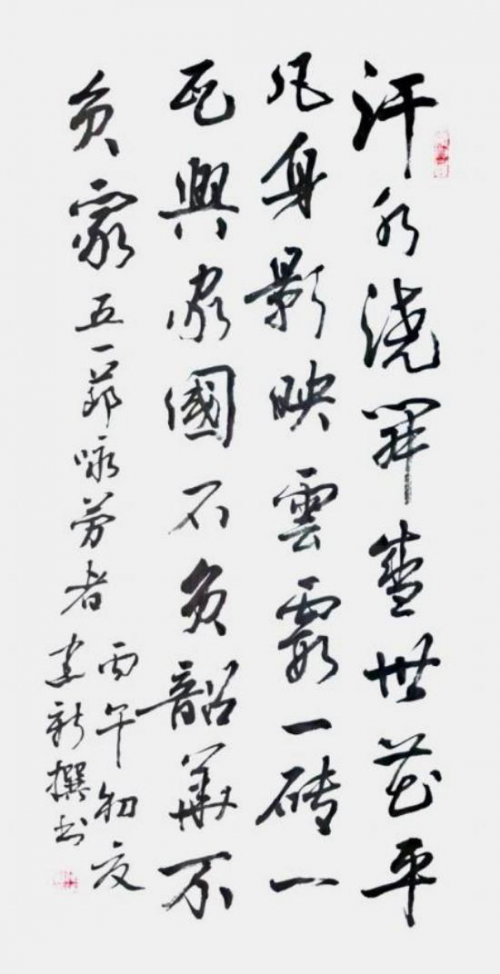 汗水浇開盛世花平
凡身影映雲霞一砖一
瓦興家國不負韶華不
負家 五一節咏劳者
丙午初夏
建新撰书